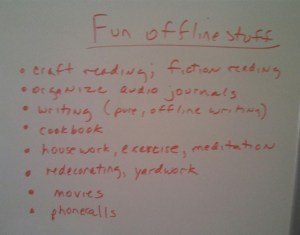 Fun offline stuff
• craft reading; fiction reading
• organize audio journals
• writing (pure, offline writing)
• cookbook
• housework, exercise, meditation
• redecorating, yardwork
• movies
• phonecalls